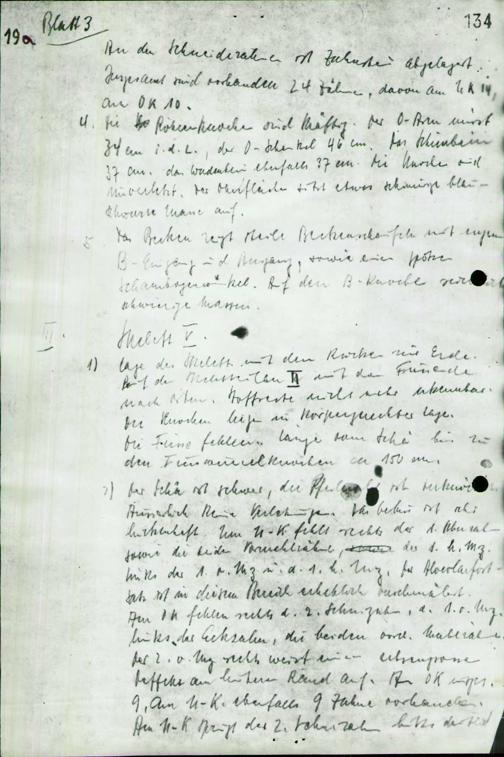 134
19a Blatt 3
An den Schneidezähnen ist Zahnstein abgelagert.
Insgesamt sind vorhanden 24 Zähne, davon am UK 14,
am OK 10.
4. Die Röhrenknochen sind kräftig. Der O-Arm misst
34 cm i. d. L., der O-Schenkel 46 cm. Das Schienbein
37 cm. das Wadenbein ebenfalls 37 cm. Die Knochen sind
unverletzt. Der Oberfläche sitzt etwas schmierige blau-
schwarze Masse auf.
5. Das Becken zeigt steile Beckenschaufeln mit engem
B-Eingang und Ausgang, sowie einen spitzen
Schambogenwinkel. Auf den B-Knochen
schwarze Massen.
III. Skelett V.
1) Lage des Skeletts mit dem Rücken zur Erde.
II mit der
nach Osten. Stoffreste nicht mehr erkennbar.
Die Knochen liegen in körpergerechter Lage.
Die Füsse fehlen. Länge vom Schä bis zu
den ca 150 cm.
2) Der Schä ist schwer, die ist
Äusserlich keine Verletzungen. Das Gebiss ist sehr
lückenhaft. Im U-K fehlt rechts der 1.
sowie die beiden der 1. h. Mz.
links der 1. v. Mz. u. d. 1. h. Mz. Der Alveolarfort-
satz ist in diesem Bereich erheblich verschmälert.
Am OK fehlen rechts d. 2. Schneidezahn, d. 1. v. Mz.
links der Eckzahn, die beiden vord. Mahlzähne
Der 2. v. Mz rechts weist einen erbsengrossen
Deffekt am hinteren Rand auf. Am OK insges.
9, am U-K. ebenfalls 9 Zähne vorhanden.
Am U-K springt der 2. Schneidezahn links